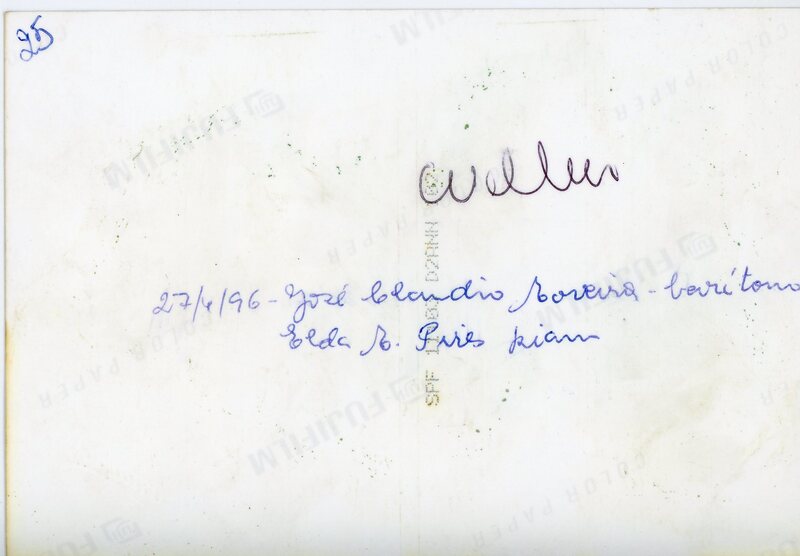 25
27/4/96 - José Claudio Moreira - barítono
Elda M. Pires piano
FUJIFILM
COLOR PAPER
FUJIFILM
COLOR PAPER
FUJIFILM
COLOR PAPER
COLOR PAPER